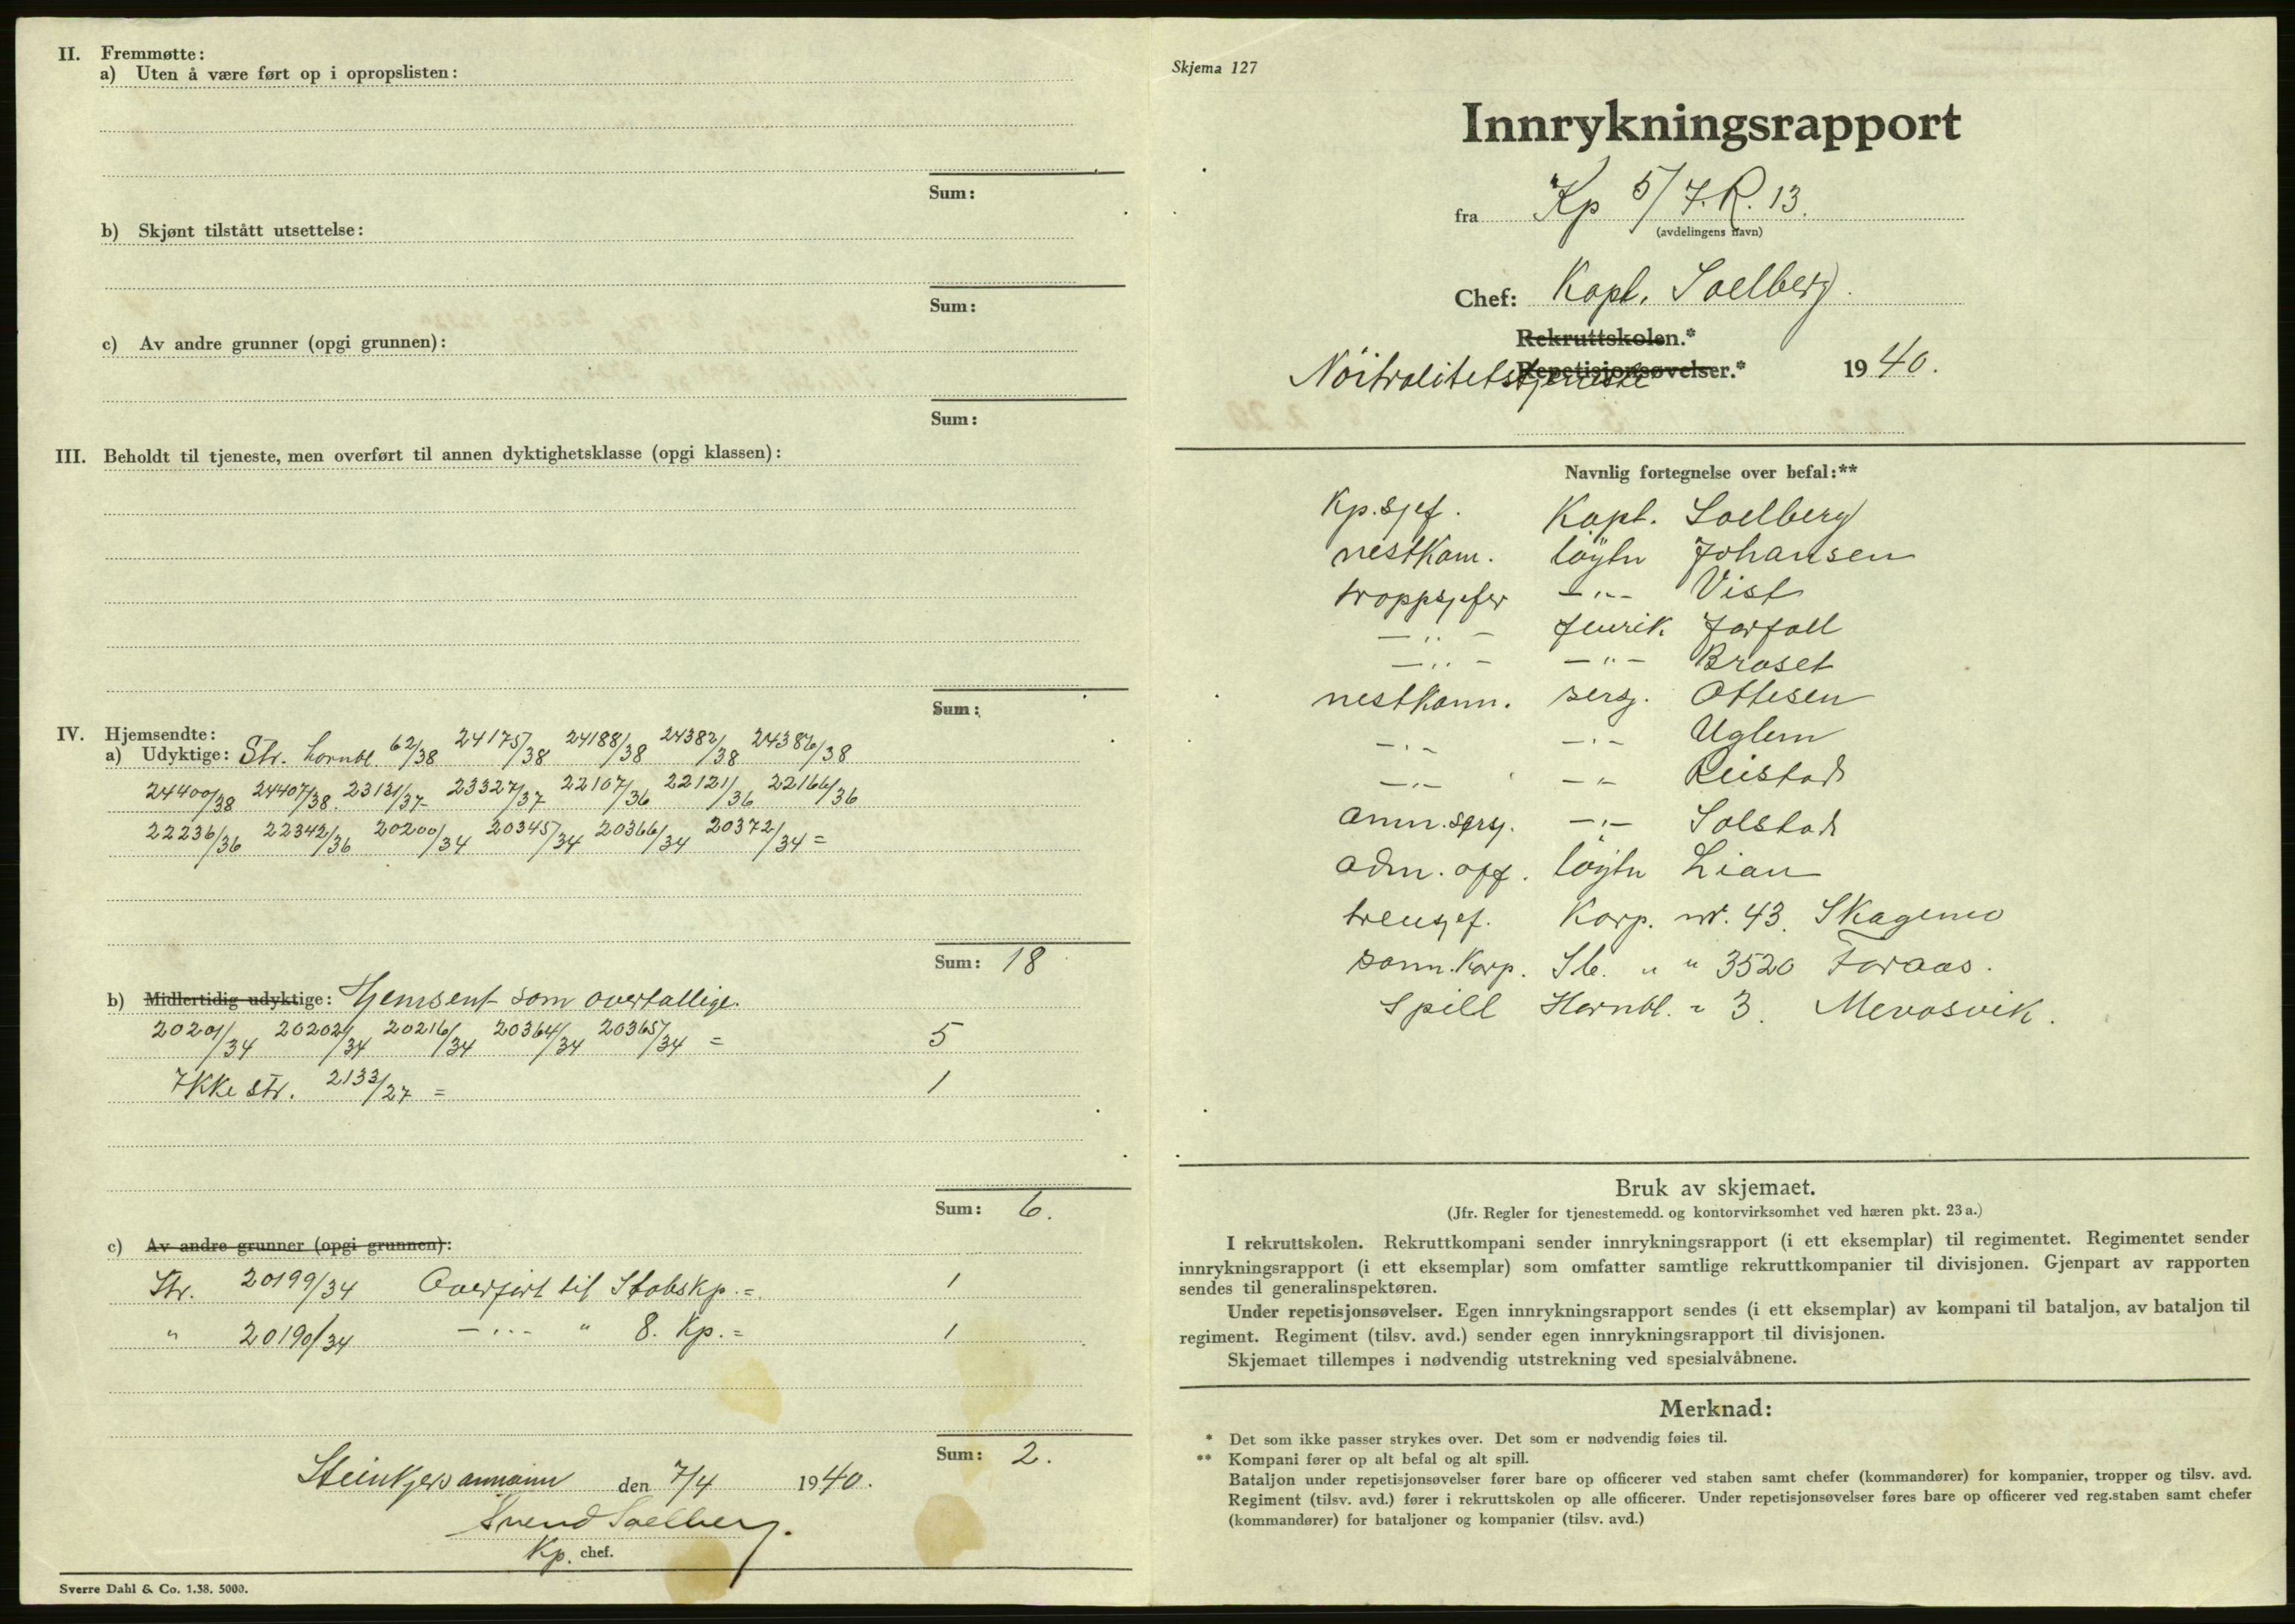 II. Fremmøtte:
a) Uten å være ført op i opropslisten:
Sum:
b) Skjønt tilstått utsettelse:
Sum:
c) Av andre grunner (opgi grunnen):
Sum:
III. Beholdt til tjeneste, men overført til annen dyktighetsklasse (opgi klassen):
Sum:
IV. Hjemsendte:
a) Udyktige: Str. hornbl 62/38 24175/38 24188/38 24382/38 24386/38
24400/38 24407/38 23131/37 23327/37 22107/36 22121/36 22166/36
22236/36 22342/36 20200/34 20345/34 20366/34 20372/34 =
Sum: 18
b) Midlertidig udyktige: Hjemsent som overtallige.
20201/34 20202/34 20216/34 20364/34 20365/34 = 5
Ikke str. 2133/27 = 1
Sum: 6.
c) Av andre grunner (opgi grunnen):
Str. 20199/34 Overført til Stabskp. = 1
" 20190/34 -"- " 8. Kp. = 1
Sum: 2.
Steinkjersannan den 7/4 1940.
Svend Soelberg.
Kp. chef.
Sverre Dahl & Co. 1.38. 5000.
Skjema 127
Innrykningsrapport
fra Kp 5/I.R. 13.
(avdelingens navn)
Chef: Kapt. Soelberg.
Rekruttskolen.*
Nöitralitetstjeneste Repetisjonsøvelser.* 1940.
Navnlig fortegnelse over befal:**
Kp.sjef. Kapt. Soelberg
nestkom. löytn Johansen
troppsjefer -"- Vist
-"- fenrik Jarfall
-"- -"- Braset
nestkom. serg. Ottesen
-"- -"- Uglem
-"- -"- Reistad
Amm.serg. -"- Solstad
adm. off. löytn Lian
trensjef. Korp. nr. 43. Skagemo
sann.korp. St. " " 3520 Faraas.
Spill Hornbl. " 3. Mevasvik.
Bruk av skjemaet.
(Jfr. Regler for tjenestemedd. og kontorvirksomhet ved hæren pkt. 23 a.)
I rekruttskolen. Rekruttkompani sender innrykningsrapport (i ett eksemplar) til regimentet. Regimentet sender
innrykningsrapport (i ett eksemplar) som omfatter samtlige rekruttkompanier til divisjonen. Gjenpart av rapporten
sendes til generalinspektøren.
Under repetisjonsøvelser. Egen innrykningsrapport sendes (i ett eksemplar) av kompani til bataljon, av bataljon til
regiment. Regiment (tilsv. avd.) sender egen innrykningsrapport til divisjonen.
Skjemaet tillempes i nødvendig utstrekning ved spesialvåbnene.
Merknad:
* Det som ikke passer strykes over. Det som er nødvendig føies til.
** Kompani fører op alt befal og alt spill.
Bataljon under repetisjonsøvelser fører bare op officerer ved staben samt chefer (kommandører) for kompanier, tropper og tilsv. avd.
Regiment (tilsv. avd.) fører i rekruttskolen op alle officerer. Under repetisjonsøvelser føres bare op officerer ved reg.staben samt chefer
(kommandører) for bataljoner og kompanier (tilsv. avd.)